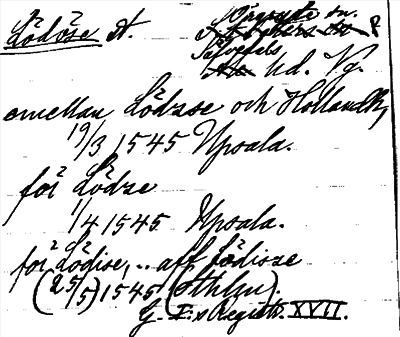 Lödöse st.
Sävedals hd. Vg.
emellan Lödzse och Hollandh,
19/3 1545 Upsala.
för Lödze
1/4 1545 Upsala.
för Lödise, .. aff Lödisze
(25/5) 1545 (Sthlm).
G. I:s Registr. XVII.